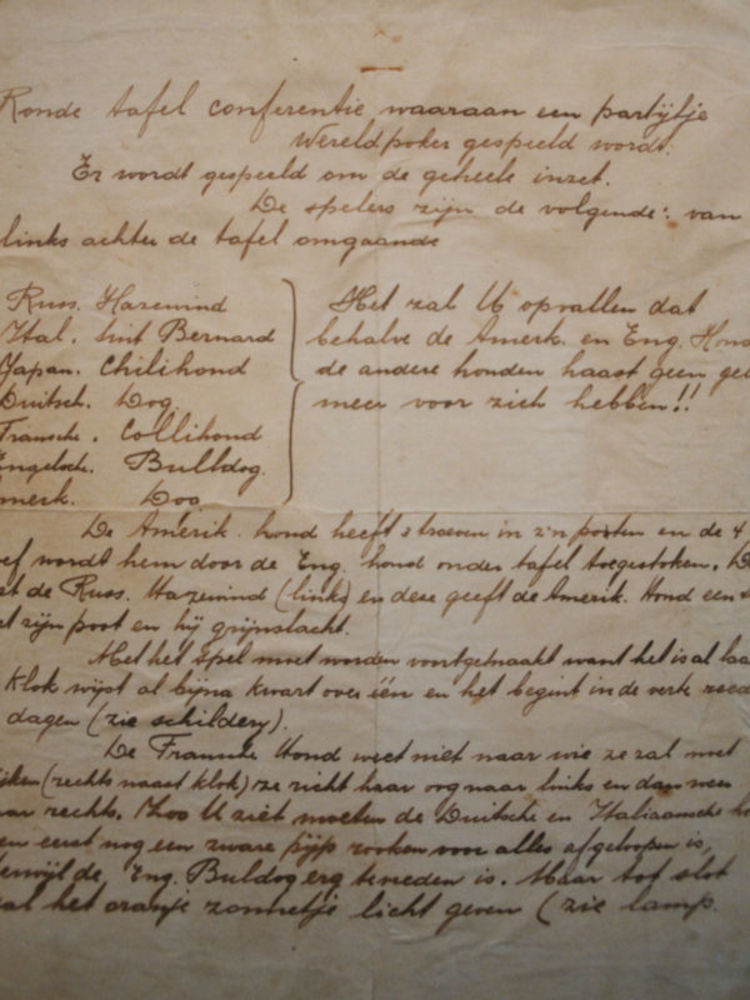 Ronde tafel conferentie waaraan een partijtje
Wereldpoker gespeeld wordt.
Er wordt gespeeld om de geheele inzet.
De spelers zijn de volgende: van
links achter de tafel omgaande
Russ. Hazewind
Ital. Sint Bernard
Japan. Chilihond
Duitsch. Dog
Fransche. Collihond
Engelsche. Bulldog.
merk. Dog
Het zal U opvallen dat
behalve de Amerk. en Eng. Hond
de andere honden haast geen gel
meer voor zich hebben!!
De Amerik. hond heeft 3 troeven in z'n pooten en de 4
ef wordt hem door de Eng. hond onder tafel toegestoken. D
et de Russ. Hazewind (links) en deze geeft de Amerik. Hond een
et zijn poot en hij grijnslacht.
Met het spel moet worden voortgemaakt want het is al laa
Klok wijst al bijna kwart over één en het begint in de verte reed
dagen (zie schildery).
De Fransche Hond weet niet naar wie ze zal moet
ijken (rechts naast klok) ze richt haar oog naar links en dan weer
aar rechts. Zoo U ziet moeten de Duitsche en Italiaansche ho
en eerst nog een zware pijp rooken voor alles afgeloopen is,
terwijl de Eng. Buldog erg tevreden is. Maar tot slot
zal het oranje zonnetje licht geven (zie lamp.